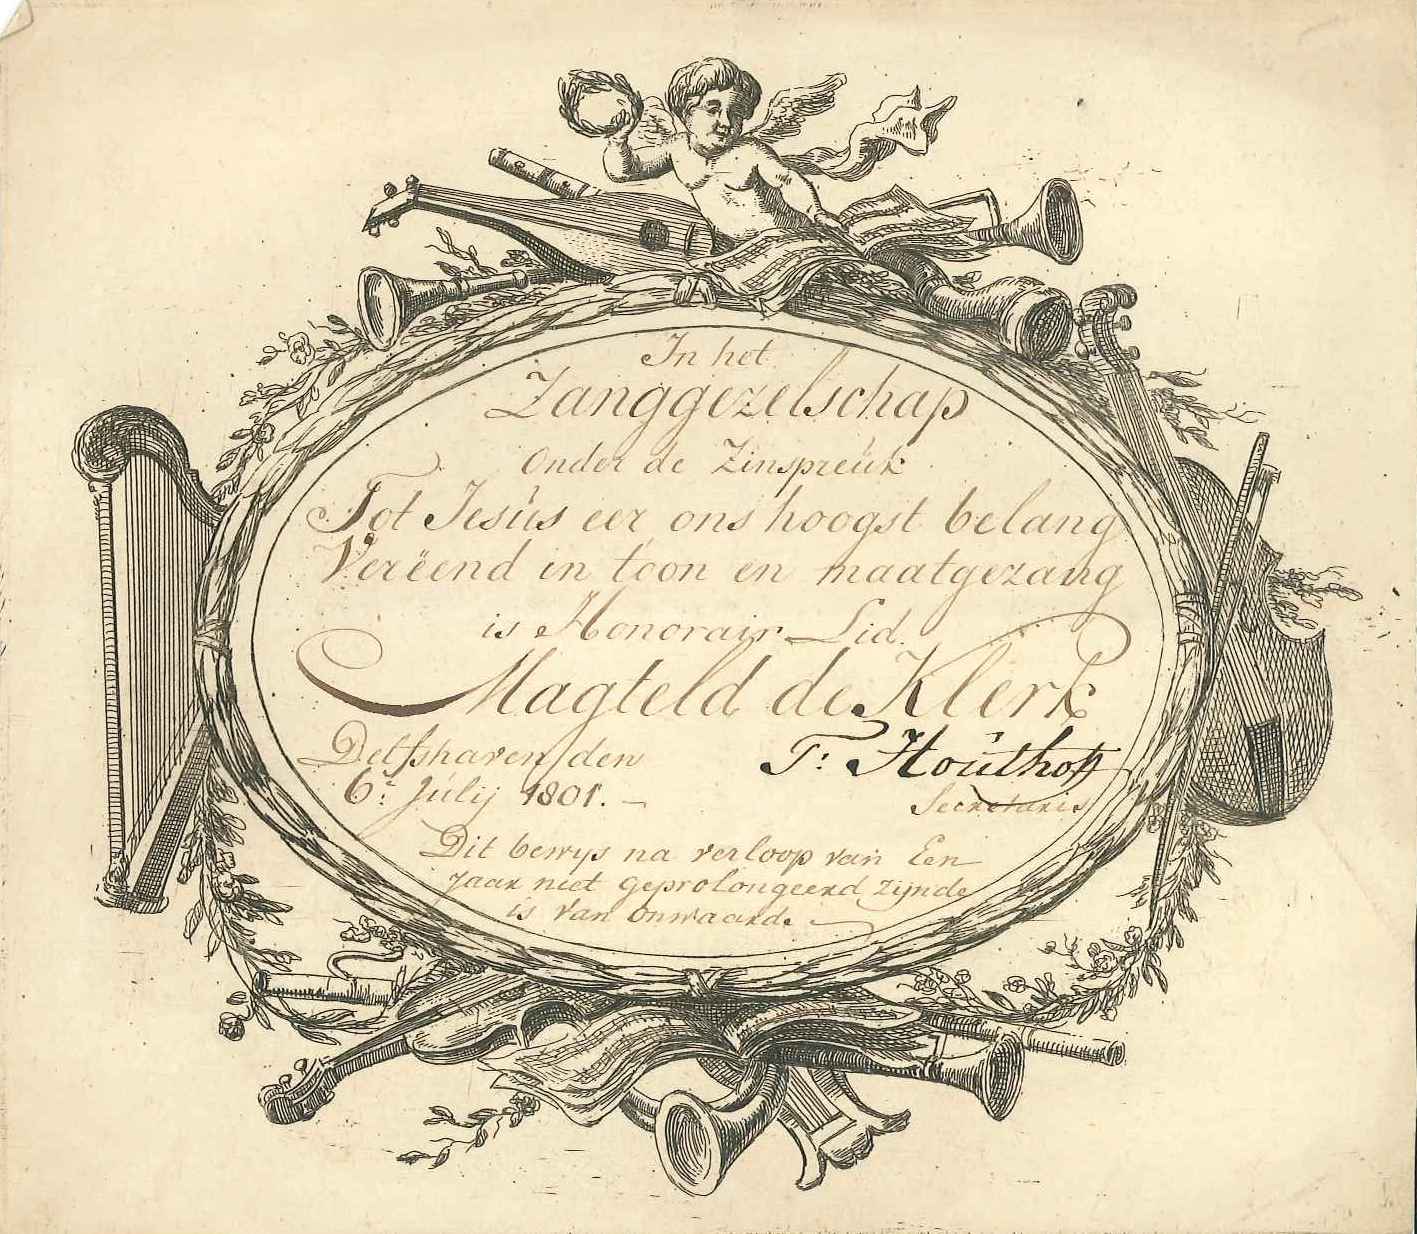 In het
Zanggezelschap
Onder de Zinspreúk
Tot Jesús eer ons hoogst belang
Verëend in toon en maatgezang
is Honorair Lid.
Magteld de Klerk
Delfshaven den
6e July 1801. –
T: Houthoff
Secretaris
Dit bewys na verloop van Een
Jaar niet geprolongeerd zijnde
is van onwaarde.